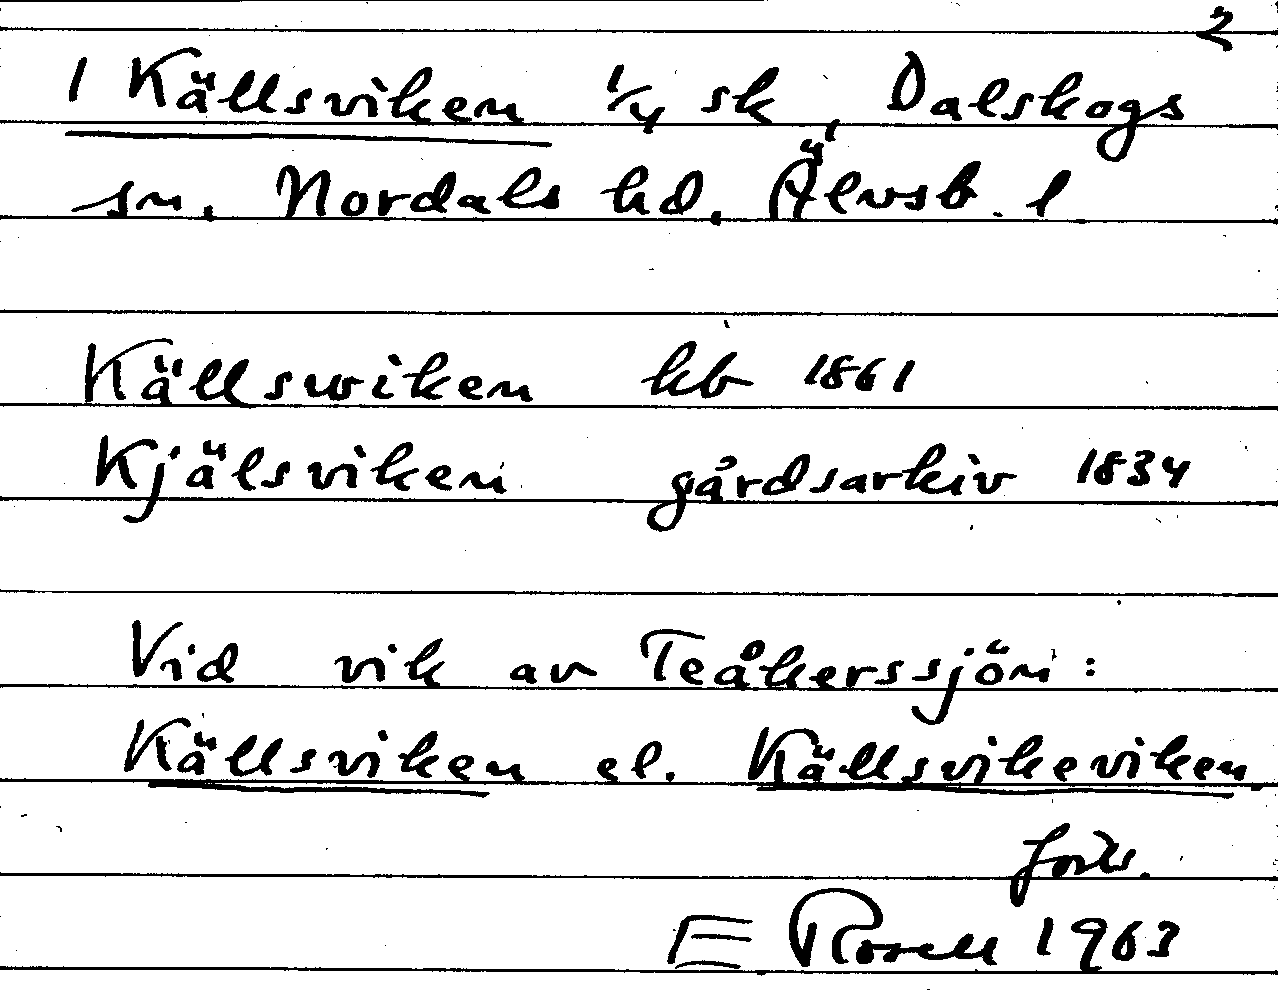 2
1 Källsviken 1/4 sk, Dalskogs
sn. Nordals hd. Älvsb. l
Källswiken kb 1861
Kjälsviken gårdsarkiv 1834
Vid vik av Teåkerssjön:
Källsviken el. Källsvikeviken
forts.
E Rosell 1963